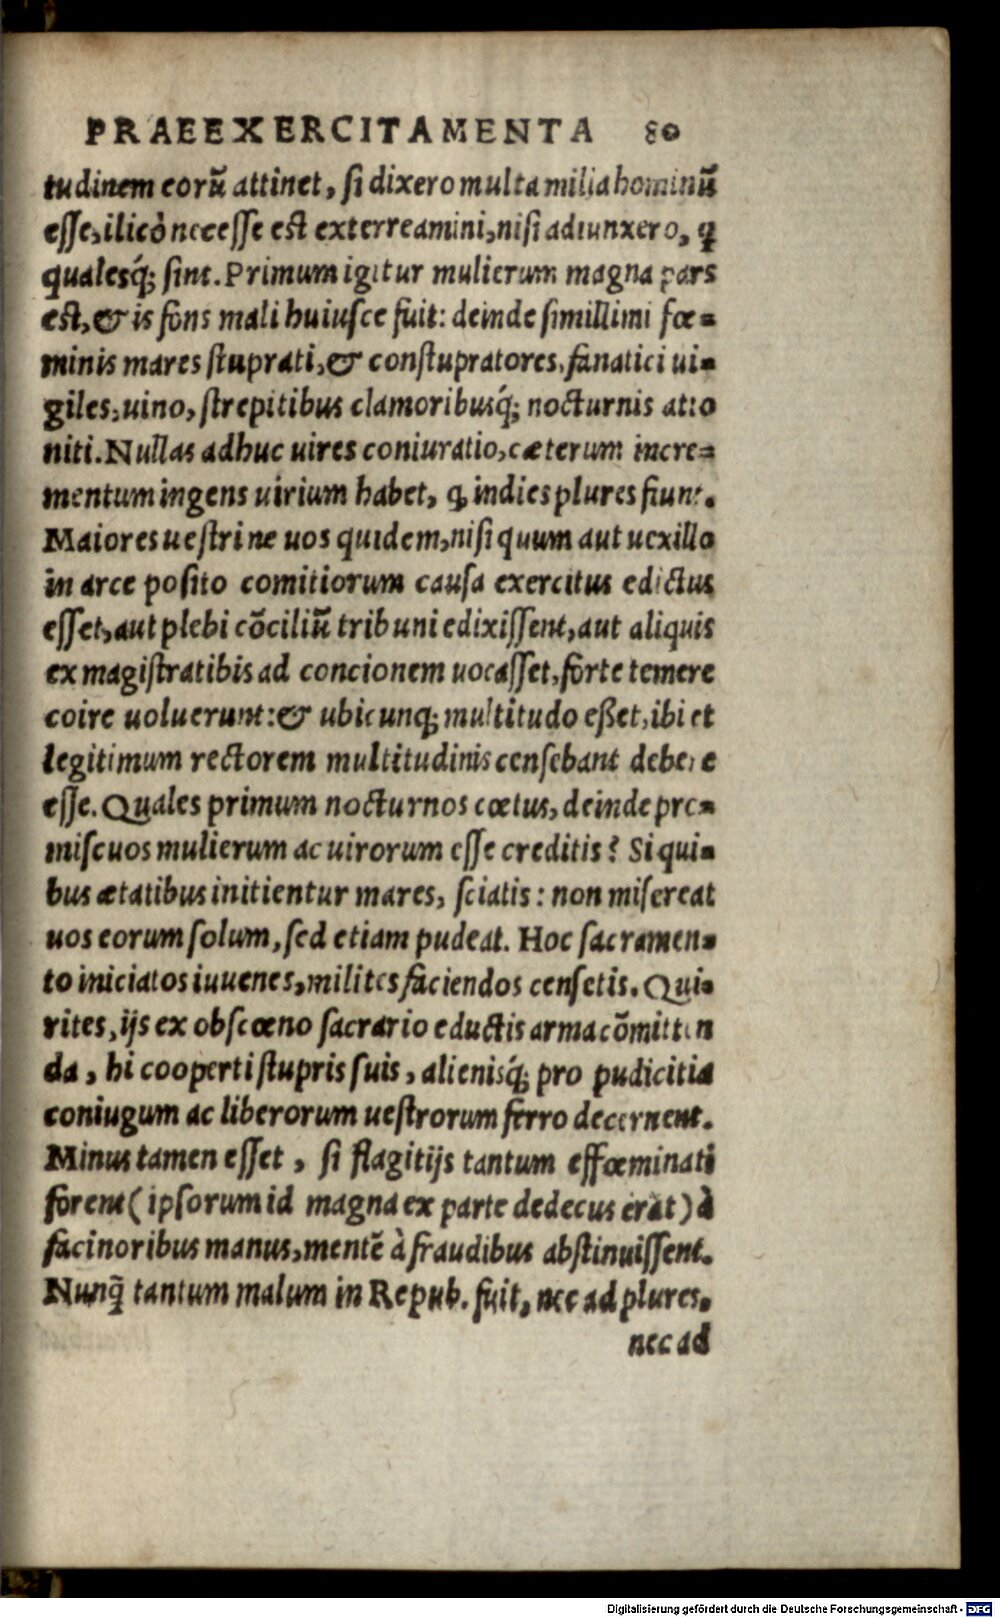 PRAEEXERCITAMENTA 80
tudinem eorū attinet, si dixero multa milia hominū
esse, ilicò necesse est exterreamini, nisi adiunxero, q̃
qualesq́; sint. Primum igitur mulierum magna pars
est, & is fons mali huiusce fuit: deinde simillimi fœ=
minis mares stuprati, & constupratores, fanatici ui=
giles, uino, strepitibus clamoribusq́; nocturnis atto
niti. Nullas adhuc uires coniuratio, cæterum incre=
mentum ingens uirium habet, q̃ indies plures fiunt.
Maiores uestri ne uos quidem, nisi quum aut uexillo
in arce posito comitiorum causa exercitus edictus
esset, aut plebi cōciliū tribuni edixissent, aut aliquis
ex magistratibis ad concionem uocasset, forte temere
coire uoluerunt: & ubicunq; multitudo eßet, ibi et
legitimum rectorem multitudinis censebant debere
esse. Quales primum nocturnos cœtus, deinde pro=
miscuos mulierum ac uirorum esse creditis? Si qui=
bus ætatibus initientur mares, sciatis: non misereat
uos eorum solum, sed etiam pudeat. Hoc sacramen=
to iniciatos iuuenes, milites faciendos censetis. Qui=
rites, ijs ex obscœno sacrario eductis arma cōmitten
da, hi cooperti stupris suis, alienisq́; pro pudicitia
coniugum ac liberorum uestrorum ferro decernent.
Minus tamen esset, si flagitijs tantum effœminati
forent (ipsorum id magna ex parte dedecus erat) à
facinoribus manus, mentē à fraudibus abstinuissent.
Nunq̃ tantum malum in Repub. fuit, nec ad plures,
nec ad
Digitalisierung gefördert durch die Deutsche Forschungsgemeinschaft - DFG